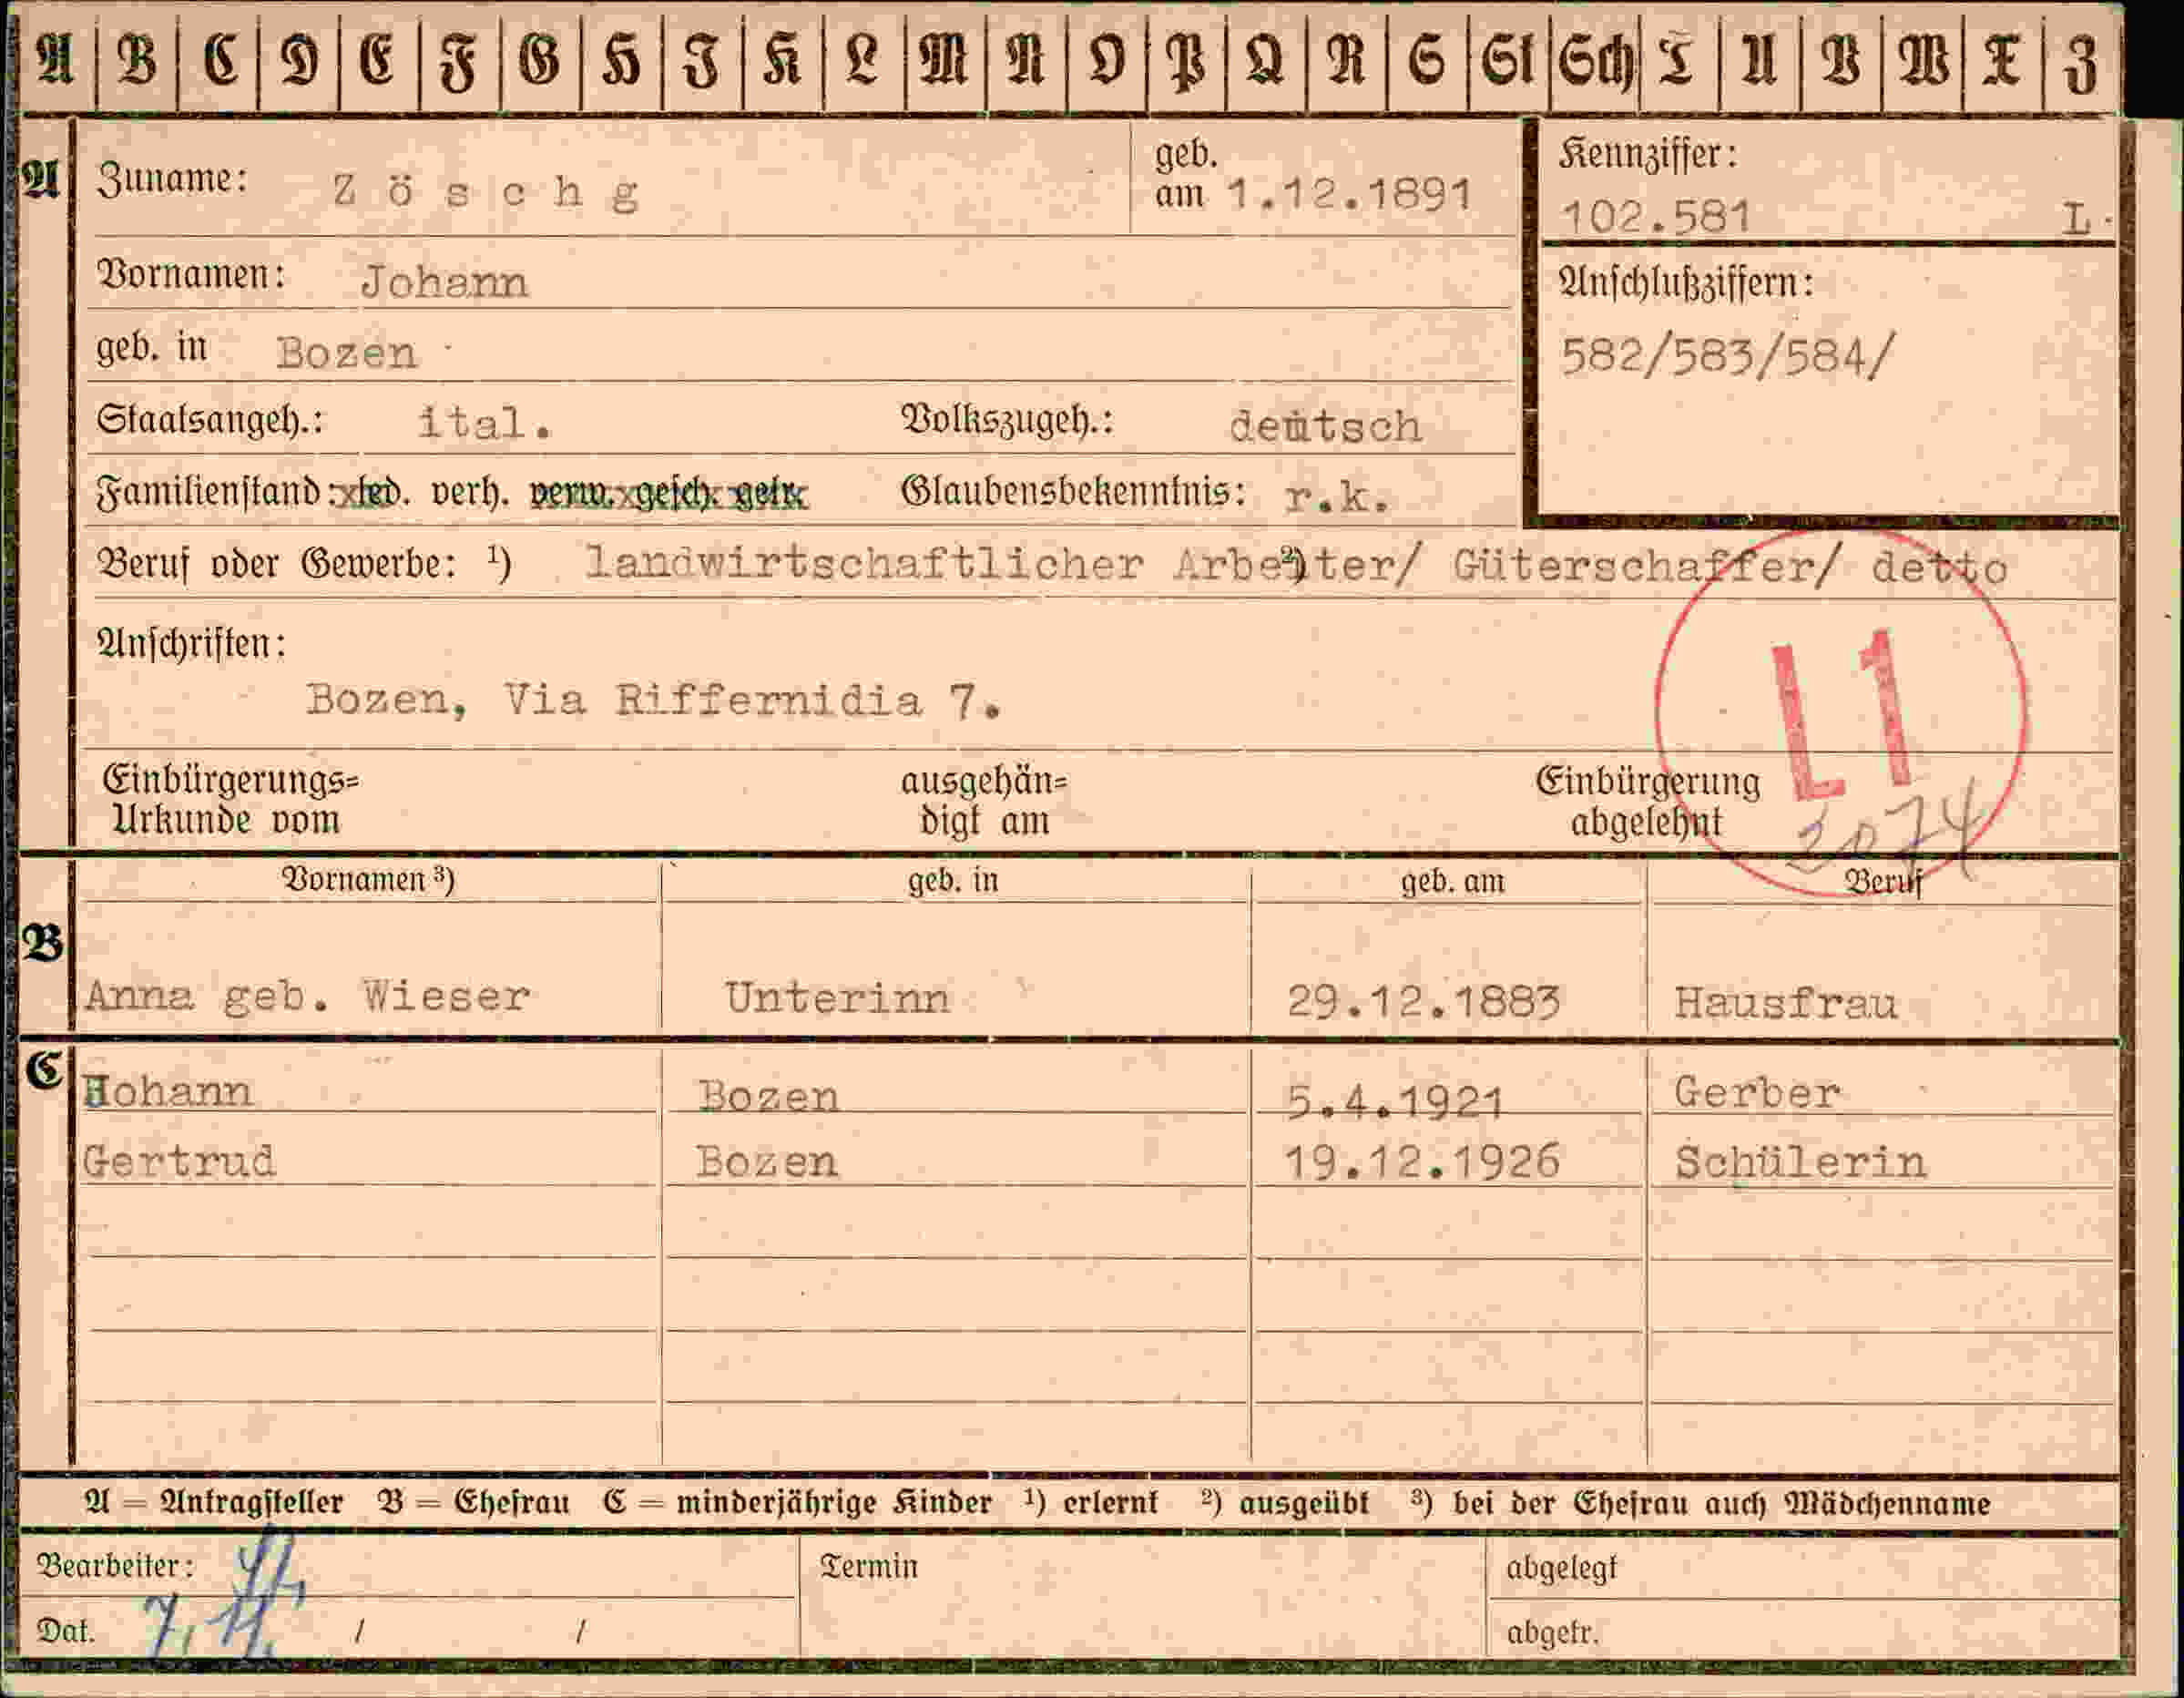 A B C D E F G H I K L M N O P Q R S St Sch T U V W X Z
A Zuname: Zöschg geb. am 1.12.1891
Kennziffer:
102.581 L.
Vornamen: Johann
Anschlußziffern:
geb. in Bozen
582/583/584/
Staatsangeh.: ital. Volkszugeh.: deutsch
Familienstand: led. verh. verw. gesch. getr. Glaubensbekenntnis: r.k.
Beruf oder Gewerbe: ¹) landwirtschaftlicher Arbeiter/ ²) Güterschaffer/ detto
Anschriften:
Bozen, Via Riffernidia 7.
L1
Einbürgerungs= ausgehän= Einbürgerung
Urkunde vom digt am abgelehnt 2074
Vornamen ³) geb. in geb. am Beruf
B
Anna geb. Wieser Unterinn 29.12.1883 Hausfrau
C
Johann Bozen 5.4.1921 Gerber
Gertrud Bozen 19.12.1926 Schülerin
A = Antragsteller B = Ehefrau C = minderjährige Kinder ¹) erlernt ²) ausgeübt ³) bei der Ehefrau auch Mädchenname
Bearbeiter: Termin abgelegt
Dat. 7. 11. / / abgetr.